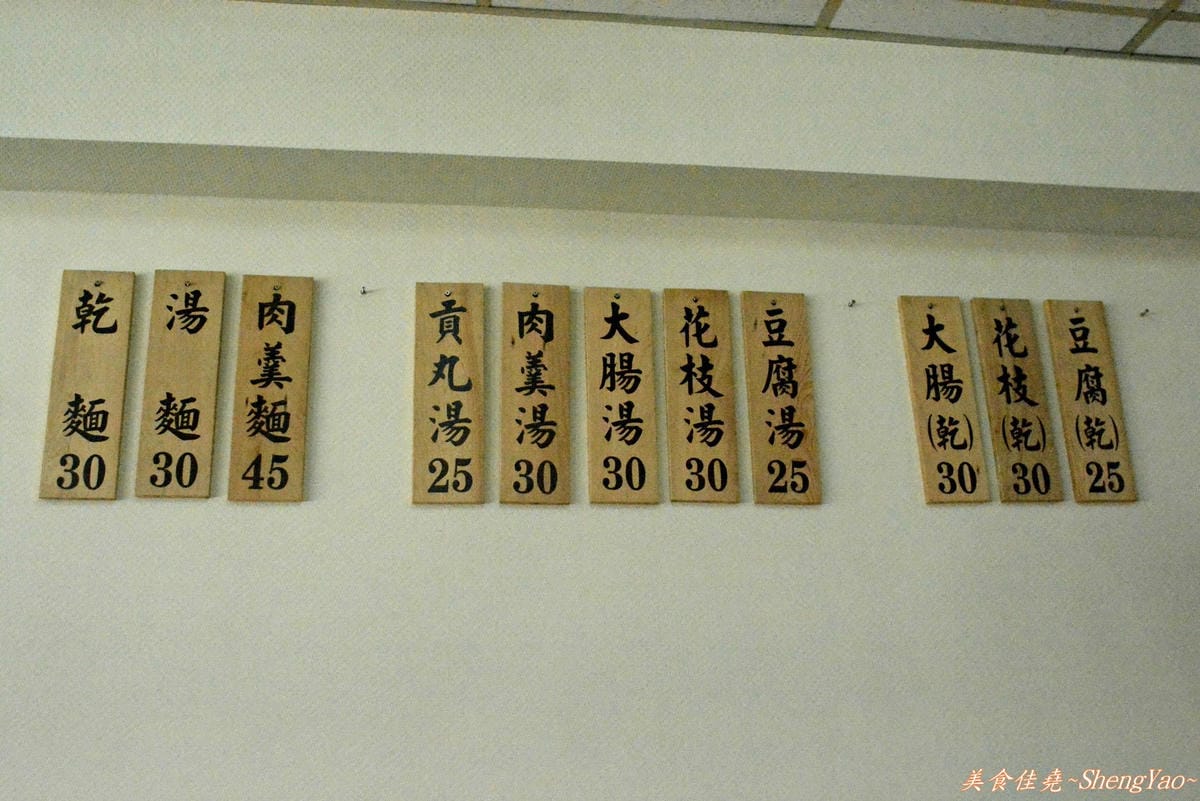 乾麵30
湯麵30
肉羹麵45
貢丸湯25
肉羹湯30
大腸湯30
花枝湯30
豆腐湯25
大腸(乾)30
花枝(乾)30
豆腐(乾)25
美食佳堯~ShengYao~